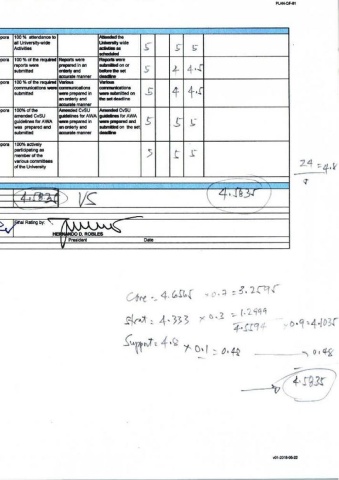 PLAN-OF-01
pora 100 % attendance to all University-wide Activities Attended the University wide activities as scheduled 5 5 5
pora 100 % of the required reports were submitted Reports were prepared in an orderly and accurate manner Reports were submitted on or before the set deadline 5 4 4.5
pora 100 % of the required communications were submitted Various communications were prepared in an orderly and accurate manner Various communications were submitted on the set deadline 5 4 4.5
pora 100% of the amended CvSU guidelines for AWA was prepared and submitted Amended CvSU guidelines for AWA were prepared in an orderly and accurate manner Amended CvSU guidelines for AWA were prepared and submitted on the set deadline 5 5 5
pora 100% actively participating as member of the various committees of the University 5 5 5
24 = 4.8
5
4.5835 VS 4.5835
Final Rating by:
HERNANDO D. ROBLES
President Date
Core = 4.6565 × 0.7 = 3.2595
Strat = 4.333 × 0.3 = 1.2999
4.5594 × 0.9 = 4.1035
Support = 4.8 × 0.1 = 0.48 0.48
4.5835
v01-2018-05-22